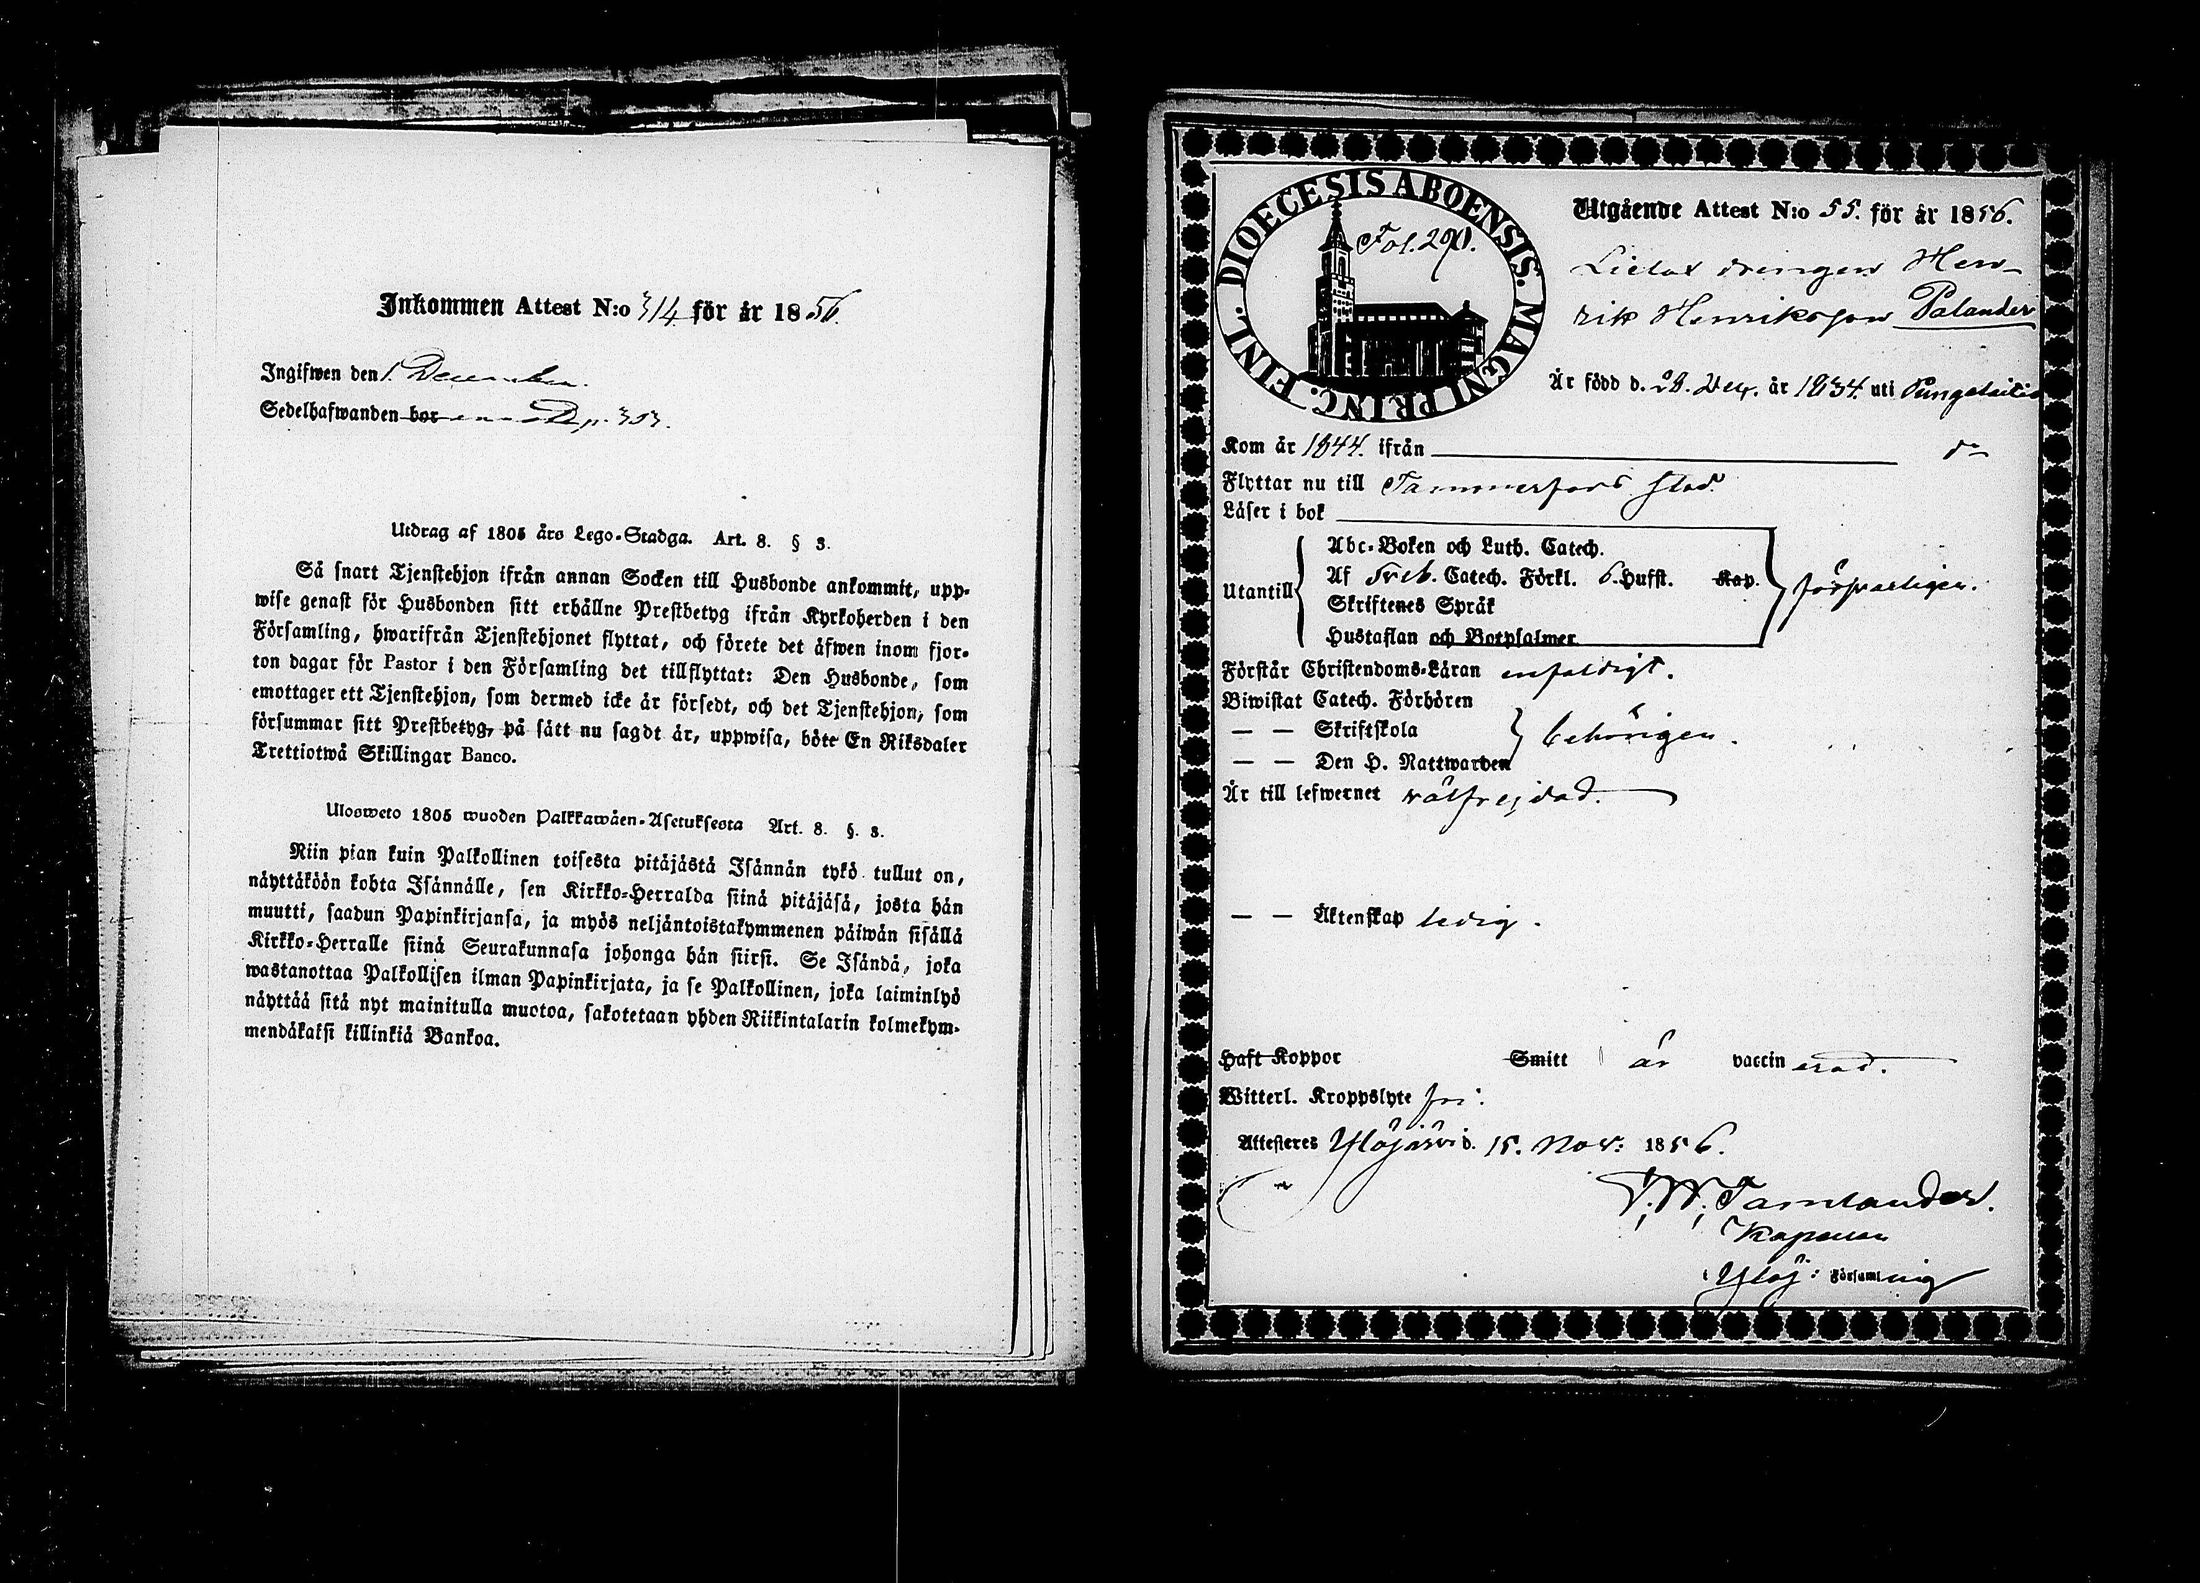 Inkommen Attest N:o 314 för år 1856.
Ingifwen den 1. December.
Sedelhafwanden bor p. 303.
Utdrag af 1805 års Lego-Stadga. Art. 8. § 3.
Så snart Tjenstehjon ifrån annan Socken till Husbonde ankommit, upp-
wise genast för Husbonden sitt erhållne Prestbetyg ifrån Kyrkoherden i den
Församling, hwarifrån Tjenstehjonet flyttat, och förete det äfwen inom fjor-
ton dagar för Pastor i den Församling det tillflyttat: Den Husbonde, som
emottager ett Tjenstehjon, som dermed icke är försedt, och det Tjenstehjon, som
försummar sitt Prestbetyg, på sätt nu sagdt är, uppwisa, böte En Riksdaler
Trettiotwå Skillingar Banco.
Ulosweto 1805 wuoden Palkkawäen-Asetuksesta Art. 8. §. 3.
Niin pian kuin Palkollinen toisesta pitäjästä Isännän tykö tullut on,
näyttäköön kohta Isännälle, sen Kirkko-Herralda siinä pitäjäsä, josta hän
muutti, saadun Papinkirjansa, ja myös neljäntoistakymmenen päiwän sisällä
Kirkko-Herralle siinä Seurakunnasa johonga hän siirsi. Se Isändä, joka
wastanottaa Palkollisen ilman Papinkirjata, ja se Palkollinen, joka laiminlyö
näyttää sitä nyt mainitulla muotoa, sakotetaan yhden Riikintalarin kolmekym-
mendäkaksi killinkiä Bankoa.
DIOECESIS ABOENSIS. MAGNI PRINC. FINL.
Fol. 290.
Utgående Attest N:o 55. för år 1856.
drengen Hen-
rik Henriksson Palander
Är född d. 28. år 1834. uti Pungalaitio
Kom år 1844. ifrån d:o
Flyttar nu till Tammerfors stad.
Läser i bok
Utantill
Abc-Boken och Luth. Catech.
Af Sveb. Catech. Förkl. 6. Hufst. Kap.
Skriftenes Språk
Hustaflan och Botpsalmer
försvarligen.
Förstår Christendoms-Läran enfaldigt.
Biwistat Catech. Förhören
— — Skriftskola
— — Den H. Nattwarden
behörigen.
Är till lefwernet wälfrejdad.
— — Äktenskap ledig.
Haft Koppor Smitt är vaccinerad.
Witterl. Kroppslyte fri.
Attesteres Ylöjärvi d. 15. Nov: 1856.
Tamlander.
Kapellan
i Ylöj: Församling